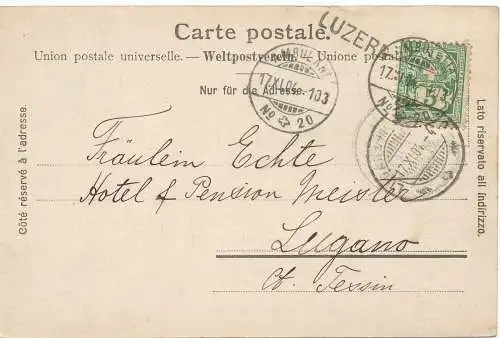 Carte postale.
LUZERN
Union postale universelle. — Weltpostverein. — Unione postale
AMBULANT
17.XI.04 103
No 20
Nur für die Adresse.
Côté réservé à l'adresse.
Lato riservato all indirizzo.
Fräulein Echte
Hotel & Pension Meister
Lugano
Ct. Tessin